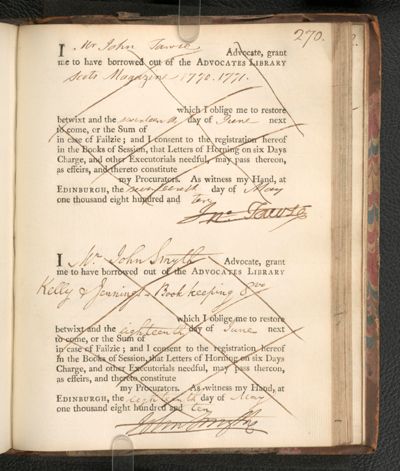 270.
I Mr John Tawse Advocate, grant
me to have borrowed out of the ADVOCATES LIBRARY
Scots Magazine 1770. 1771.
which I oblige me to restore
betwixt and the seventeenth day of June next
to come, or the Sum of
in case of Failzie; and I consent to the registration hereof
in the Books of Session, that Letters of Horning on six Days
Charge, and other Executorials needful, may pass thereon,
as effeirs, and thereto constitute
my Procurators. As witness my Hand, at
EDINBURGH, the seventeenth day of May
one thousand eight hundred and ten
Jno. Tawse
I Mr John Smyth Advocate, grant
me to have borrowed out of the ADVOCATES LIBRARY
Kelly & Jennings Book keeping 8vo
which I oblige me to restore
betwixt and the eighteenth day of June next
to come, or the Sum of
in case of Failzie; and I consent to the registration hereof
in the Books of Session, that Letters of Horning on six Days
Charge, and other Executorials needful, may pass thereon,
as effeirs, and thereto constitute
my Procurators. As witness my Hand, at
EDINBURGH, the eighteenth day of May
one thousand eight hundred and ten
John Smyth